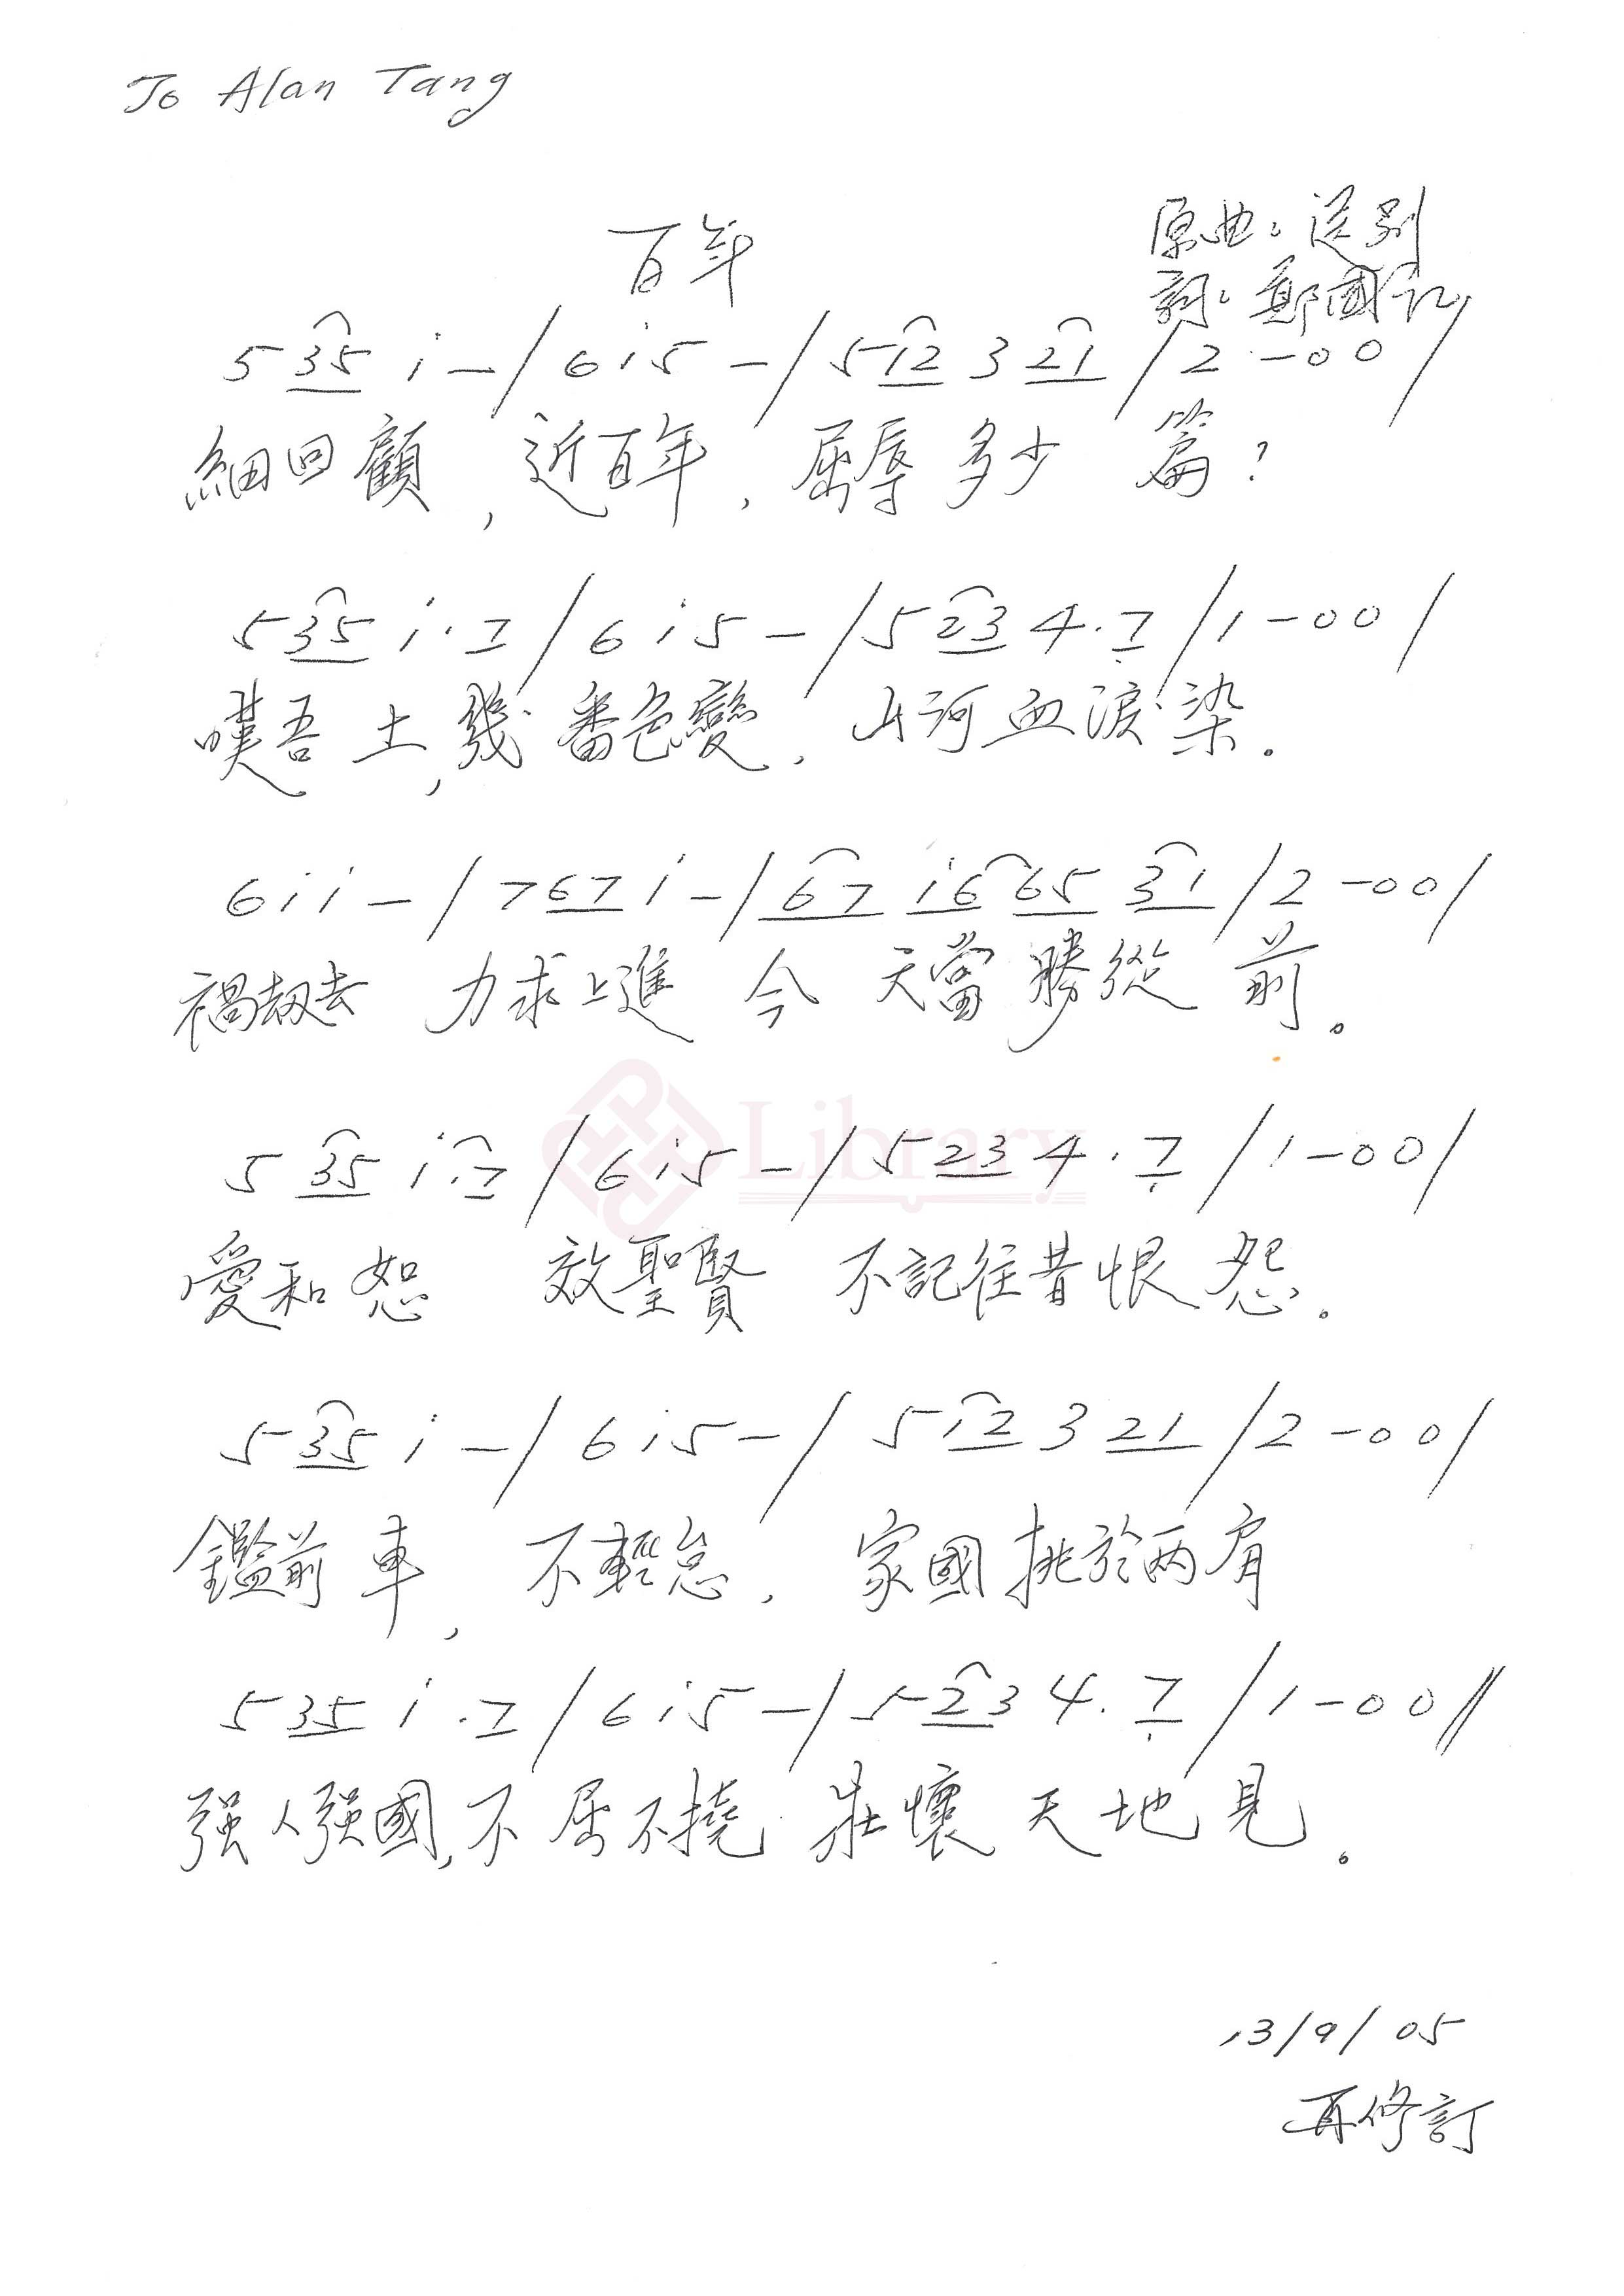 To Alan Tang
百年
原曲：送別
詞：鄭國江
5 35 i - / 6 i 5 - / 5 12 3 21 / 2 - 0 0 /
細回顧，近百年，屈辱多少篇？
5 35 i · 7 / 6 i 5 - / 5 23 4 · 7 / 1 - 0 0 /
嘆吾土，幾番色變，山河血淚染。
6 i i - / 7 67 i - / 67 i6 65 31 / 2 - 0 0 /
禍劫去 力求上進 今天當勝從前。
5 35 i · 7 / 6 i 5 - / 5 23 4 · 7 / 1 - 0 0 /
愛和恕 效聖賢 不記往昔恨怨。
Library
5 35 i - / 6 i 5 - / 5 12 3 21 / 2 - 0 0 /
鑑前車，不輕怠，家國挑於兩肩
5 35 i · 7 / 6 i 5 - / 5 23 4 · 7 / 1 - 0 0 //
强人强國，不屈不撓 壯懷天地見。
13/9/05
再修訂